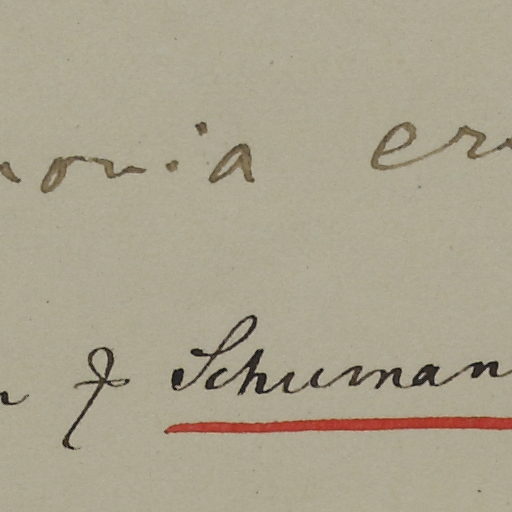 onia er
J Schuman